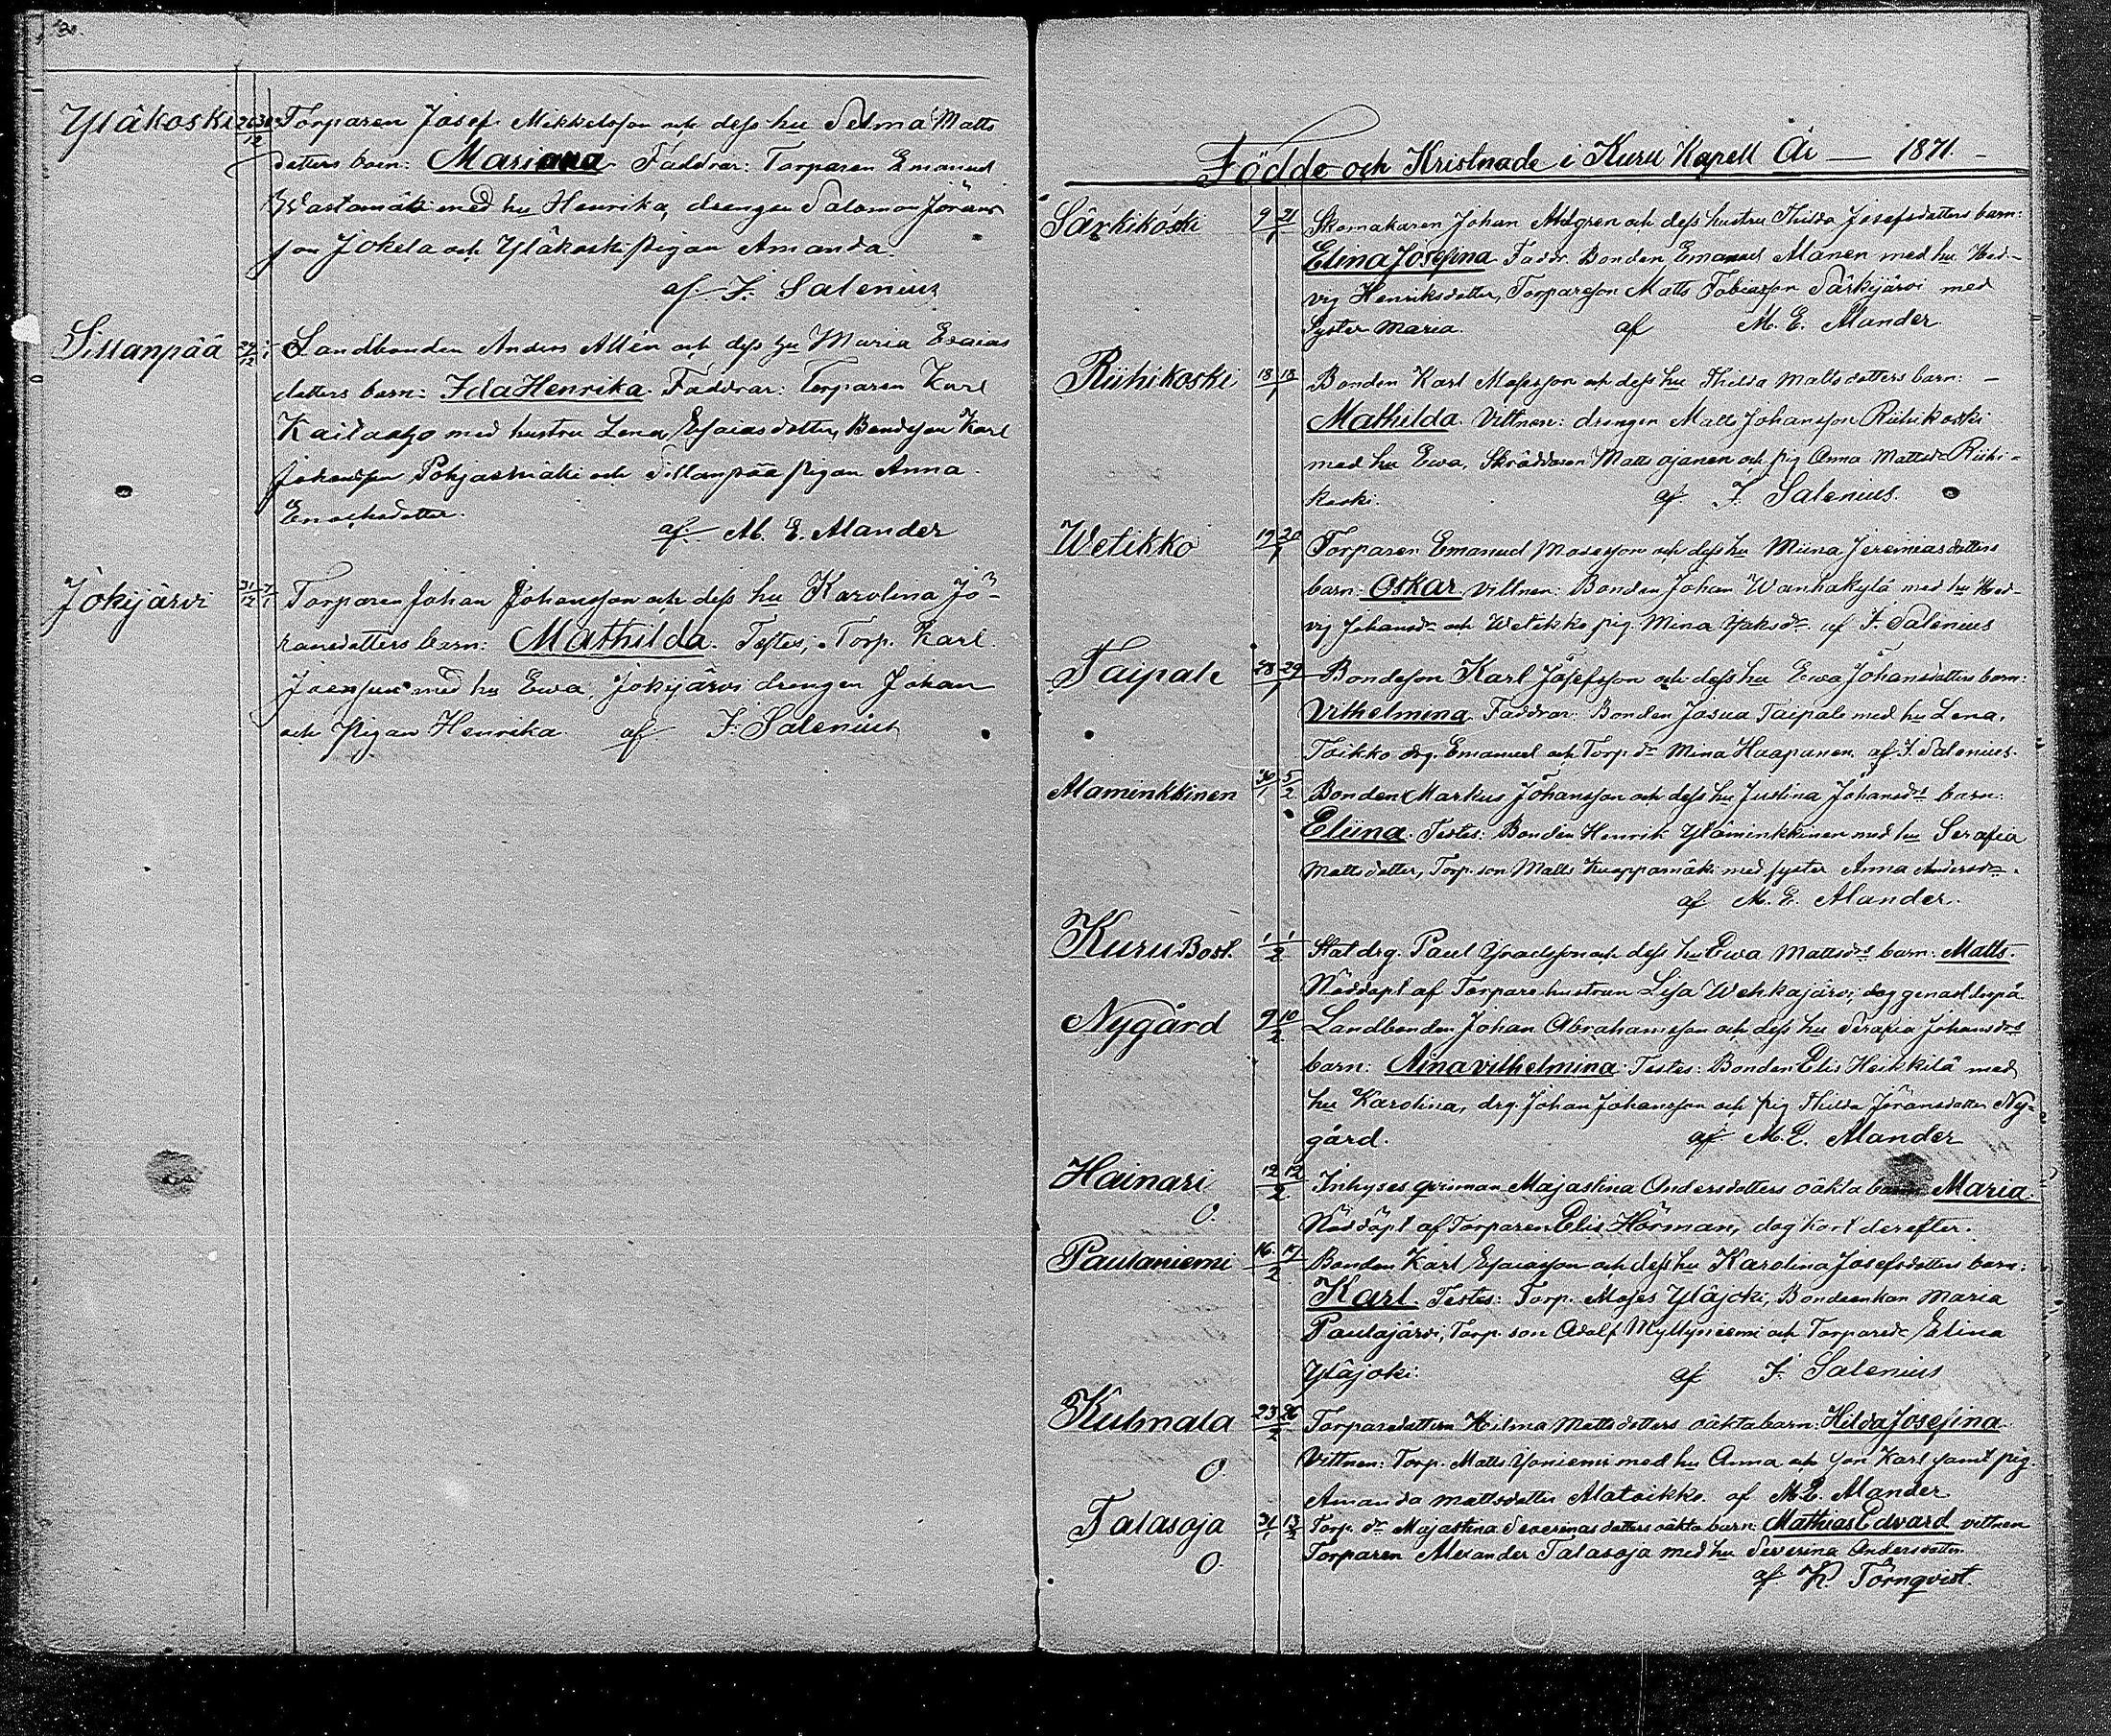 Yläkoski 26/12 Torparen Josef Mikkelsson och dess hu Selma Matts
dotters barn: Mariana Faddrar: Torparen Emanuel
med hu Henrika, drengen Salomon Jörans
son Jokela och Yläkoski pigan Amanda.
af F. Salenius
Sillanpää 29/12 Landbonden Anders Allén och dess hu Maria Esaias
dotters barn: Ida Henrika. Faddrar: Torparen Karl
med hustru Lena Esaiasdotter, Bondeson Karl
Johansson Pohjasmäki och Sillanpää pigan Anna
Enochsdotter.
af M. E. Alander
Jokijärvi 31/12 7/1 Torparen Johan Johansson och dess hu Karolina Jö-
ransdotters barn: Mathilda. Testes; Torp. Karl
Joensuu med hu Ewa, Jokijärvi drengen Johan
och Pigan Henrika af F. Salenius
Födde och Kristnade i Kuru Kapell År — 1871.
Särkikoski 9 21/1 Skomakaren Johan Ahlgren och dess hustru Thilda Josefsdotters barn:
Elina Josefina Faddr. Bonden Emanuel Alanen med hu Hed-
vig Henriksdotter, Torpareson Matts Tobiasson Särkijärvi med
Syster Maria. af M. E. Alander
Riihikoski 18 18/1 Bonden Karl Mosesson och dess hu Thilda Mattsdotters barn: -
Mathilda. Vittnen: drengen Matts Johansson Riihikoski
med hu Ewa, Skräddaren Matts Ojanen och pig Anna Mattsdr Riihi-
koski. af F. Salenius.
Wetikko 19 20/1 Torparen Emanuel Mosesson och dess hu Miina Jeremiasdotters
barn: Oskar. Vittnen: Bonden Johan Wanhakylä med hu Hed-
vig Johansdr och Wetikko pig. Mina Isaksdr. af F. Salenius
Taipale 28 29/1 Bondeson Karl Josefsson och dess hu Ewa Johansdotters barn:
Vilhelmina. Faddrar: Bonden Josua Taipale med hu Lena,
Toikko drg. Emanuel och Torp.dr Mina Haapanen. af F. Salenius.
Alaminkkinen 30/1 5/2 Bonden Markus Johansson och dess hu Justina Johansdrs barn:
Eliina. Testes: Bonden Henrik Yläminkkinen med hu Serafia
Mattsdotter, Torp. son Matts Knappamäki med syster Anna Andersdr.
af M. E. Alander.
Kuru Bost. 1 1/2 Stat drg. Paul Israelsson och dess hu Ewa Mattsdrs barn: Matts.
Nöddöpt af Torpare hustrun Lisa Wehkajärvi; dog genast derpå.
Nygård 9 10/2 Landbonden Johan Abrahamsson och dess hu Serafia Johansdrs
barn: Aina Vilhelmina. Testes: Bonden Elis Heikkilä med
hu Karolina, drg. Johan Johansson och pig Thilda Jöransdotter Ny-
gård. af M. E. Alander
Hainari 12 12/2 Inhyses qvinnan Majastina Andersdotters oäkta barn Maria.
O. Nöddöpt af Torparen Elis Hörman, dog kort derefter.
Paulaniemi 16 17/2 Bonden Karl Esaiasson och dess hu Karolina Josefsdotters barn:
Karl. Testes: Torp. Moses Yläjoki, Bondeenkan Maria
Paulajärvi, Torp. son Adolf Myllyniemi och Torparedr Elina
Yläjoki. af F. Salenius
Kulmala 23 26/2 Torparedottren Hilma Mattsdotters oäkta barn: Hilda Josefina.
O. Vittnen: Torp. Matts Isoniemi med hu Anna och son Karl samt pig.
Amanda Mattsdotter Alatoikko. af M. E. Alander
Talasoja 31/1 13/2 Torp. dr Majastina Severinasdotters oäkta barn: Mathias Edvard. vittnen
O. Torparen Alexander Talasoja med hu Severina Andersdotter
af K. Törnqvist.